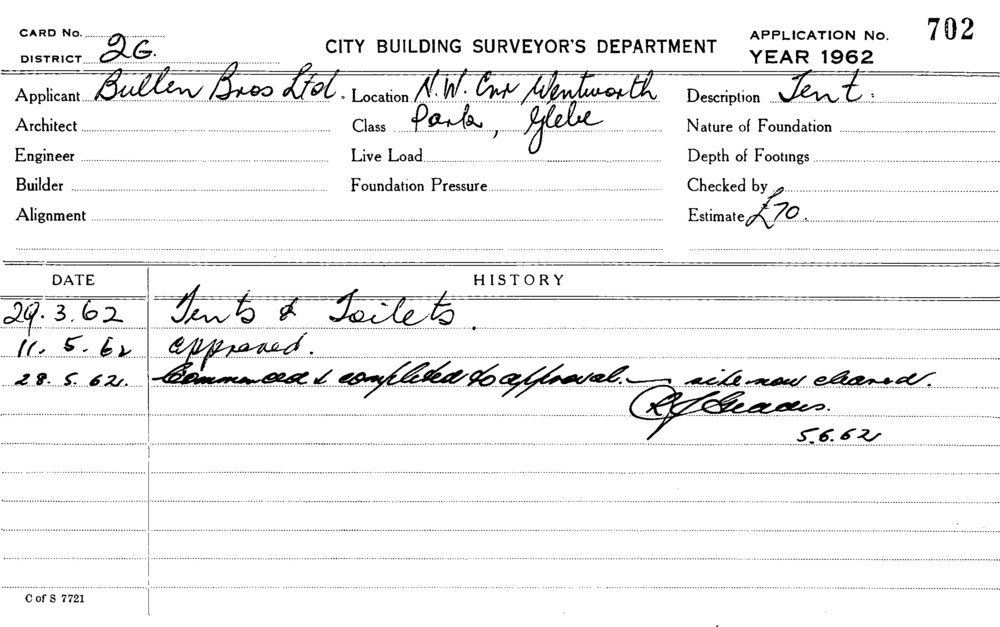 CARD No.
DISTRICT 2G.
CITY BUILDING SURVEYOR'S DEPARTMENT
APPLICATION No. 702
YEAR 1962
Applicant Bullen Bros Ltd. Location N.W. Cnr Wentworth Description Tent.
Architect Class Park, Glebe Nature of Foundation
Engineer Live Load Depth of Footings
Builder Foundation Pressure Checked by
Alignment Estimate £70.
DATE HISTORY
29.3.62 Tents & Toilets.
11.5.62 approved.
28.5.62. Commenced & completed to approval. — site now cleared.
5.6.62
C of S 7721